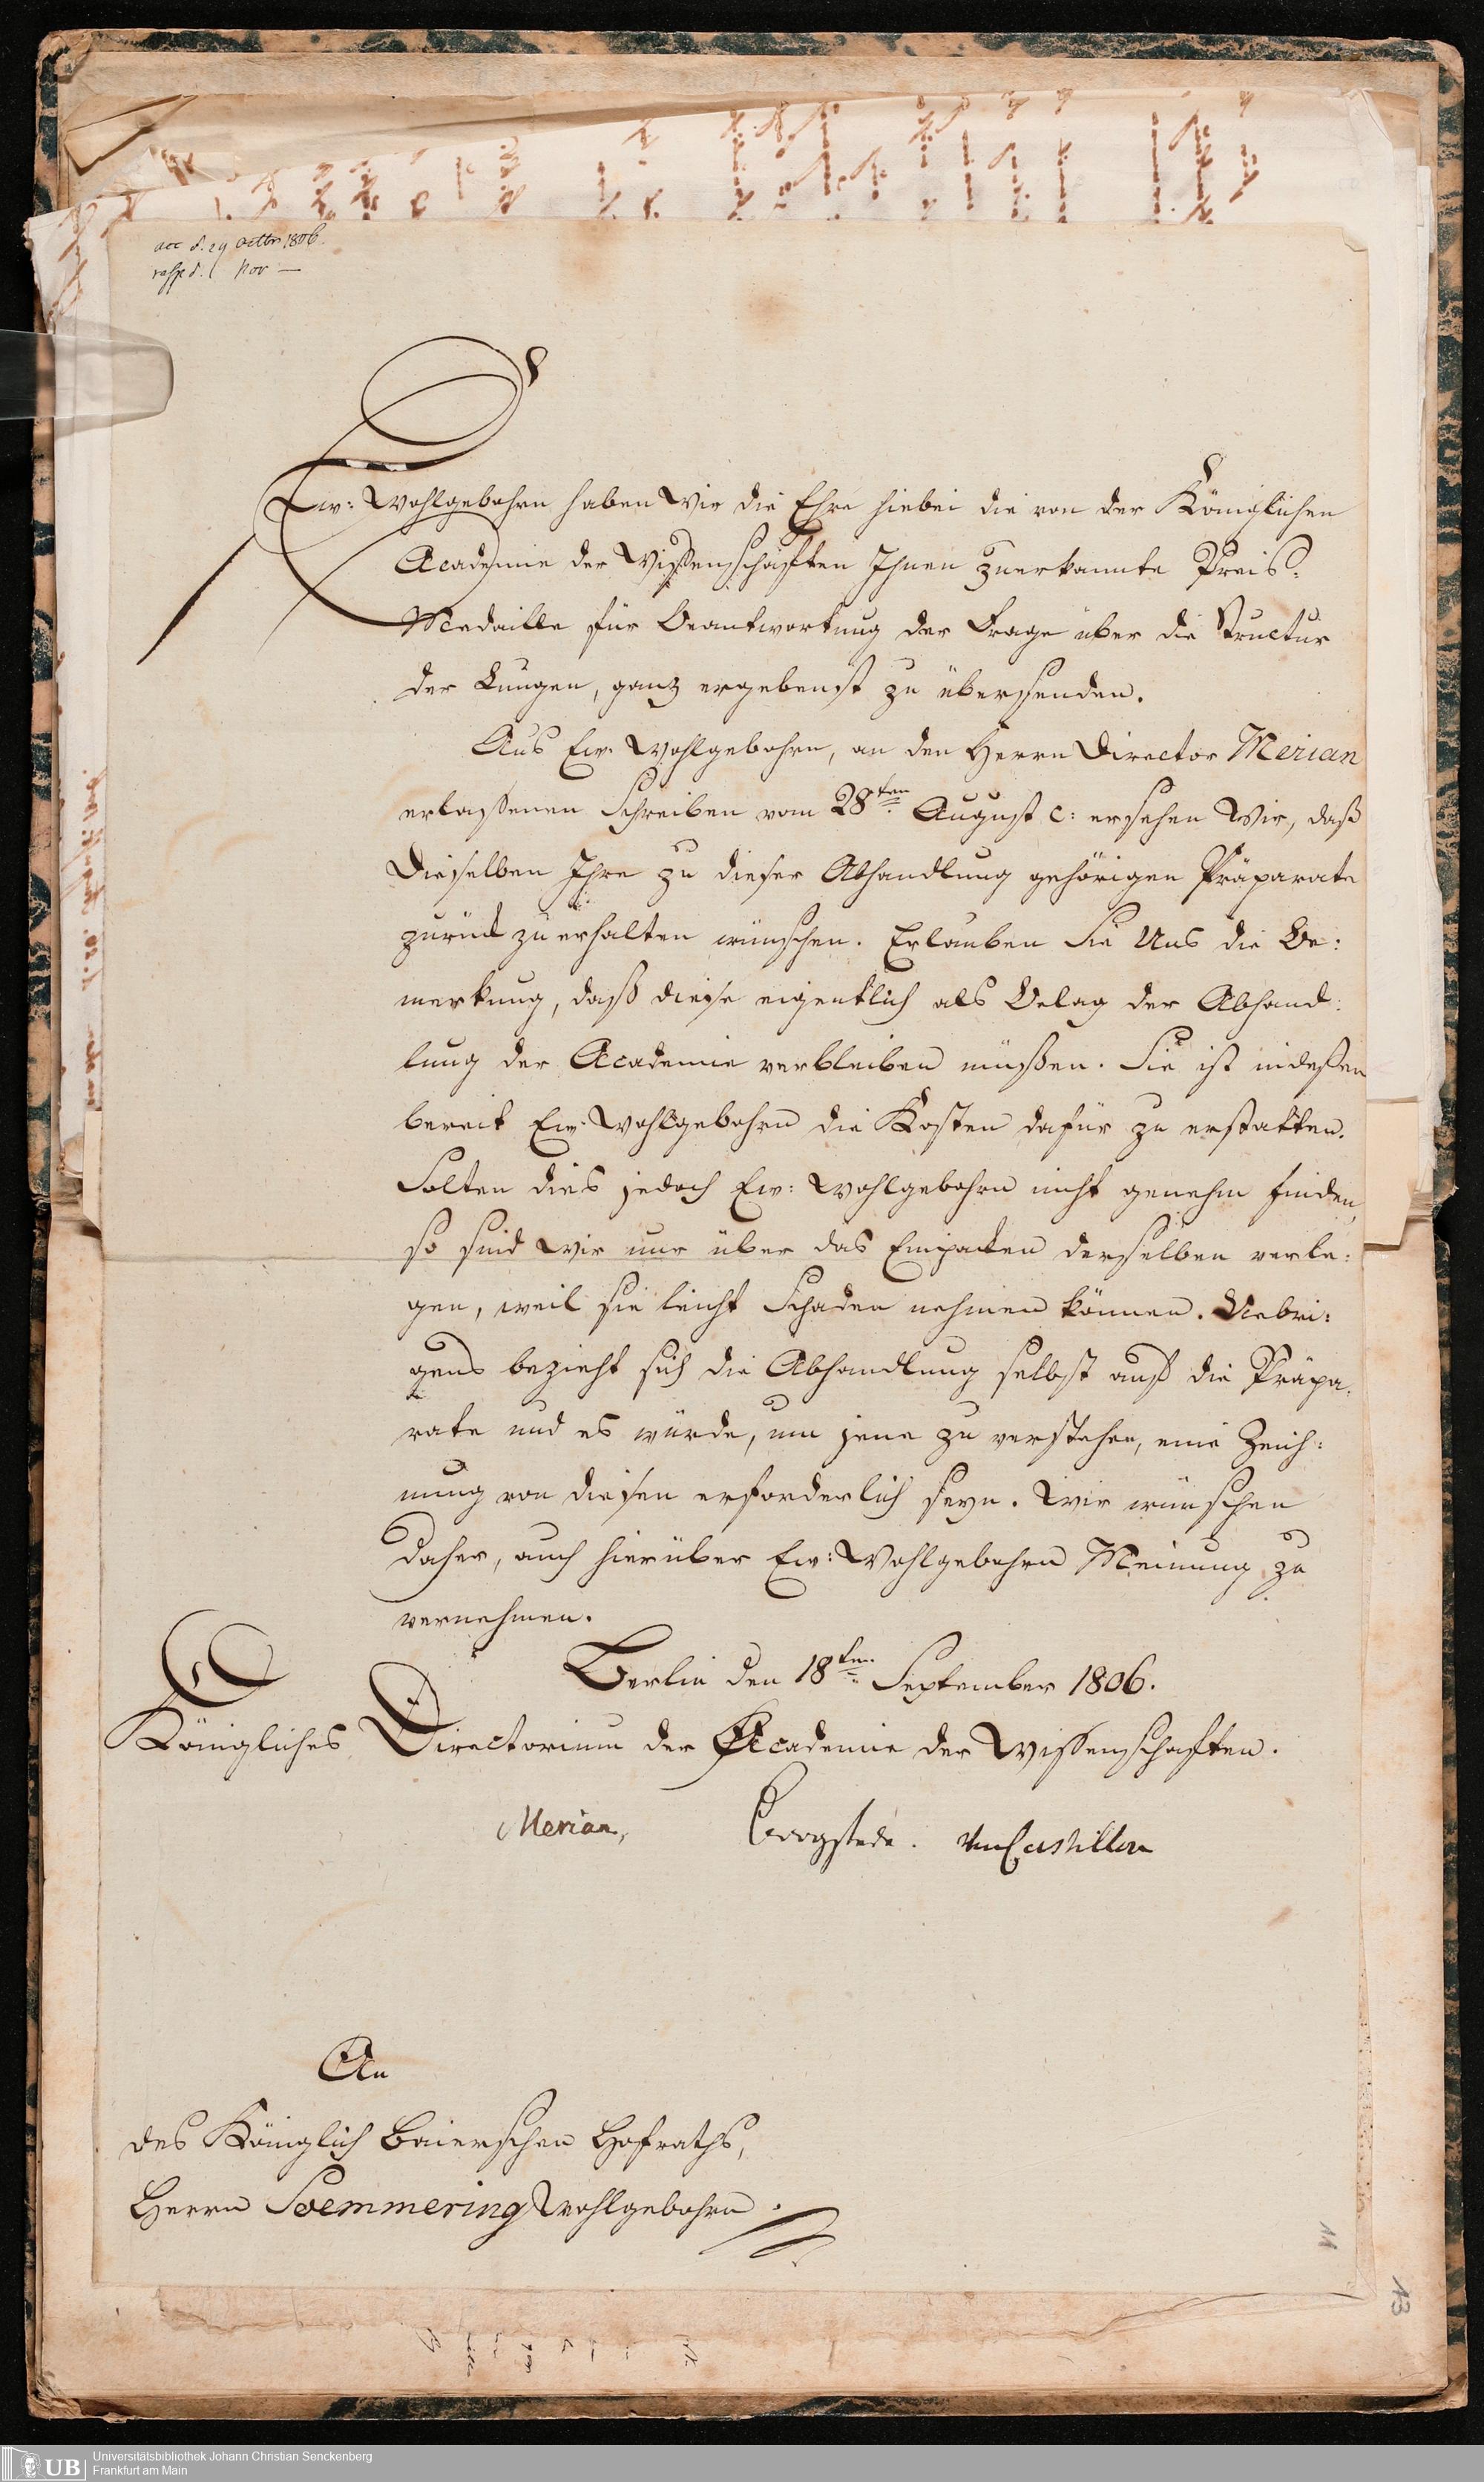 acc d. 29 Octbr 1806.
resp d. 1 Nov —
Ew: Wohlgebohrn haben Wir die Ehre hiebei die von der Königlichen
Academie der Wißenschaften Ihnen zuerkannte Preis-
Medaille für Beantwortung der Frage über die Structur
der Lungen, ganz ergebenst zu übersenden.
Aus Ew. Wohlgebohrn, an den Herrn Director Merian
erlaßenen Schreiben vom 28ten August c: ersehen Wir, daß
Dieselben Ihre zu dieser Abhandlung gehörigen Präparate
zurück zu erhalten wünschen. Erlauben Sie Uns die Be:
merkung, daß diese eigentlich als Belag der Abhand:
lung der Academie verbleiben müßen. Sie ist indeßen
bereit Ew. Wohlgebohrn die Kosten dafür zu erstatten.
Solten dies jedoch Ew: Wohlgebohrn nicht genehm finden,
so sind Wir nur über das Einpacken derselben verle:
gen, weil sie leicht Schaden nehmen können. Uebri:
gens bezieht sich die Abhandlung selbst auf die Präpa:
rate und es würde, um jene zu verstehen, eine Zeich:
nung von diesen erforderlich seyn. Wir wünschen
daher, auch hierüber Ew: Wohlgebohrn Meinung zu
vernehmen.
Berlin den 18ten September 1806.
Königliches Directorium der Academie der Wissenschaften.
Merian, Borgstede. von Castillon
An
des Königlich Baierschen Hofraths,
Herrn Soemmering Wohlgebohrn.
11
13
UB
Universitätsbibliothek Johann Christian Senckenberg
Frankfurt am Main